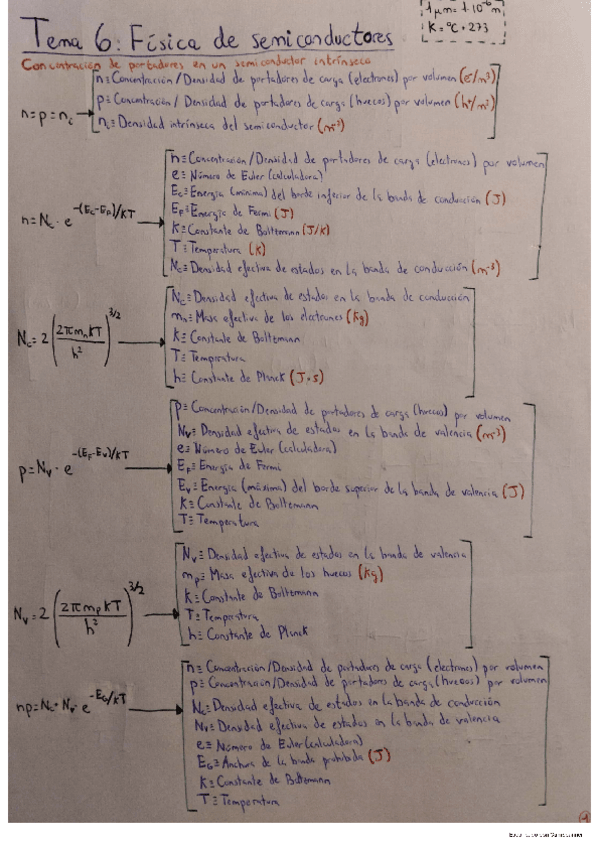 1 μm = 1·10⁻⁶ m
K = ºC + 273
Tema 6: Física de semiconductores
Concentración de portadores en un semiconductor intrínseco
n = p = nᵢ
n ≡ Concentración/Densidad de portadores de carga (electrones) por volumen (e⁻/m³)
p ≡ Concentración/Densidad de portadores de carga (huecos) por volumen (h⁺/m³)
nᵢ ≡ Densidad intrínseca del semiconductor (m⁻³)
n = N_c · e^(-(E_c-E_F)/KT)
n ≡ Concentración/Densidad de portadores de carga (electrones) por volumen
e ≡ Número de Euler (calculadora)
E_c ≡ Energía (mínima) del borde inferior de la banda de conducción (J)
E_F ≡ Energía de Fermi (J)
K ≡ Constante de Boltzmann (J/K)
T ≡ Temperatura (K)
N_c ≡ Densidad efectiva de estados en la banda de conducción (m⁻³)
N_c = 2 (2π m_n KT / h²)^(3/2)
N_c ≡ Densidad efectiva de estados en la banda de conducción
m_n ≡ Masa efectiva de los electrones (kg)
K ≡ Constante de Boltzmann
T ≡ Temperatura
h ≡ Constante de Planck (J·s)
p = N_v · e^(-(E_F-E_v)/KT)
p ≡ Concentración/Densidad de portadores de carga (huecos) por volumen
N_v ≡ Densidad efectiva de estados en la banda de valencia (m⁻³)
e ≡ Número de Euler (calculadora)
E_F ≡ Energía de Fermi
E_v ≡ Energía (máxima) del borde superior de la banda de valencia (J)
K ≡ Constante de Boltzmann
T ≡ Temperatura
N_v = 2 (2π m_p KT / h²)^(3/2)
N_v ≡ Densidad efectiva de estados en la banda de valencia
m_p ≡ Masa efectiva de los huecos (kg)
K ≡ Constante de Boltzmann
T ≡ Temperatura
h ≡ Constante de Planck
np = N_c · N_v · e^(-E_G/KT)
n ≡ Concentración/Densidad de portadores de carga (electrones) por volumen
p ≡ Concentración/Densidad de portadores de carga (huecos) por volumen
N_c ≡ Densidad efectiva de estados en la banda de conducción
N_v ≡ Densidad efectiva de estados en la banda de valencia
e ≡ Número de Euler (calculadora)
E_G ≡ Anchura de la banda prohibida (J)
K ≡ Constante de Boltzmann
T ≡ Temperatura
1